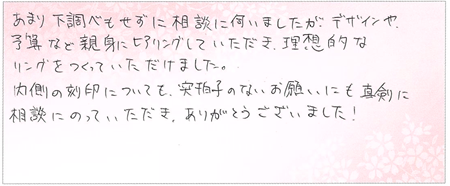 あまり下調べもせずに相談に伺いましたが デザインや、
予算など親身にヒアリングしていただき、理想的な
リングをつくっていただけました。
内側の刻印についても、突拍子のないお願いにも真剣に
相談にのっていただき、ありがとうございました!